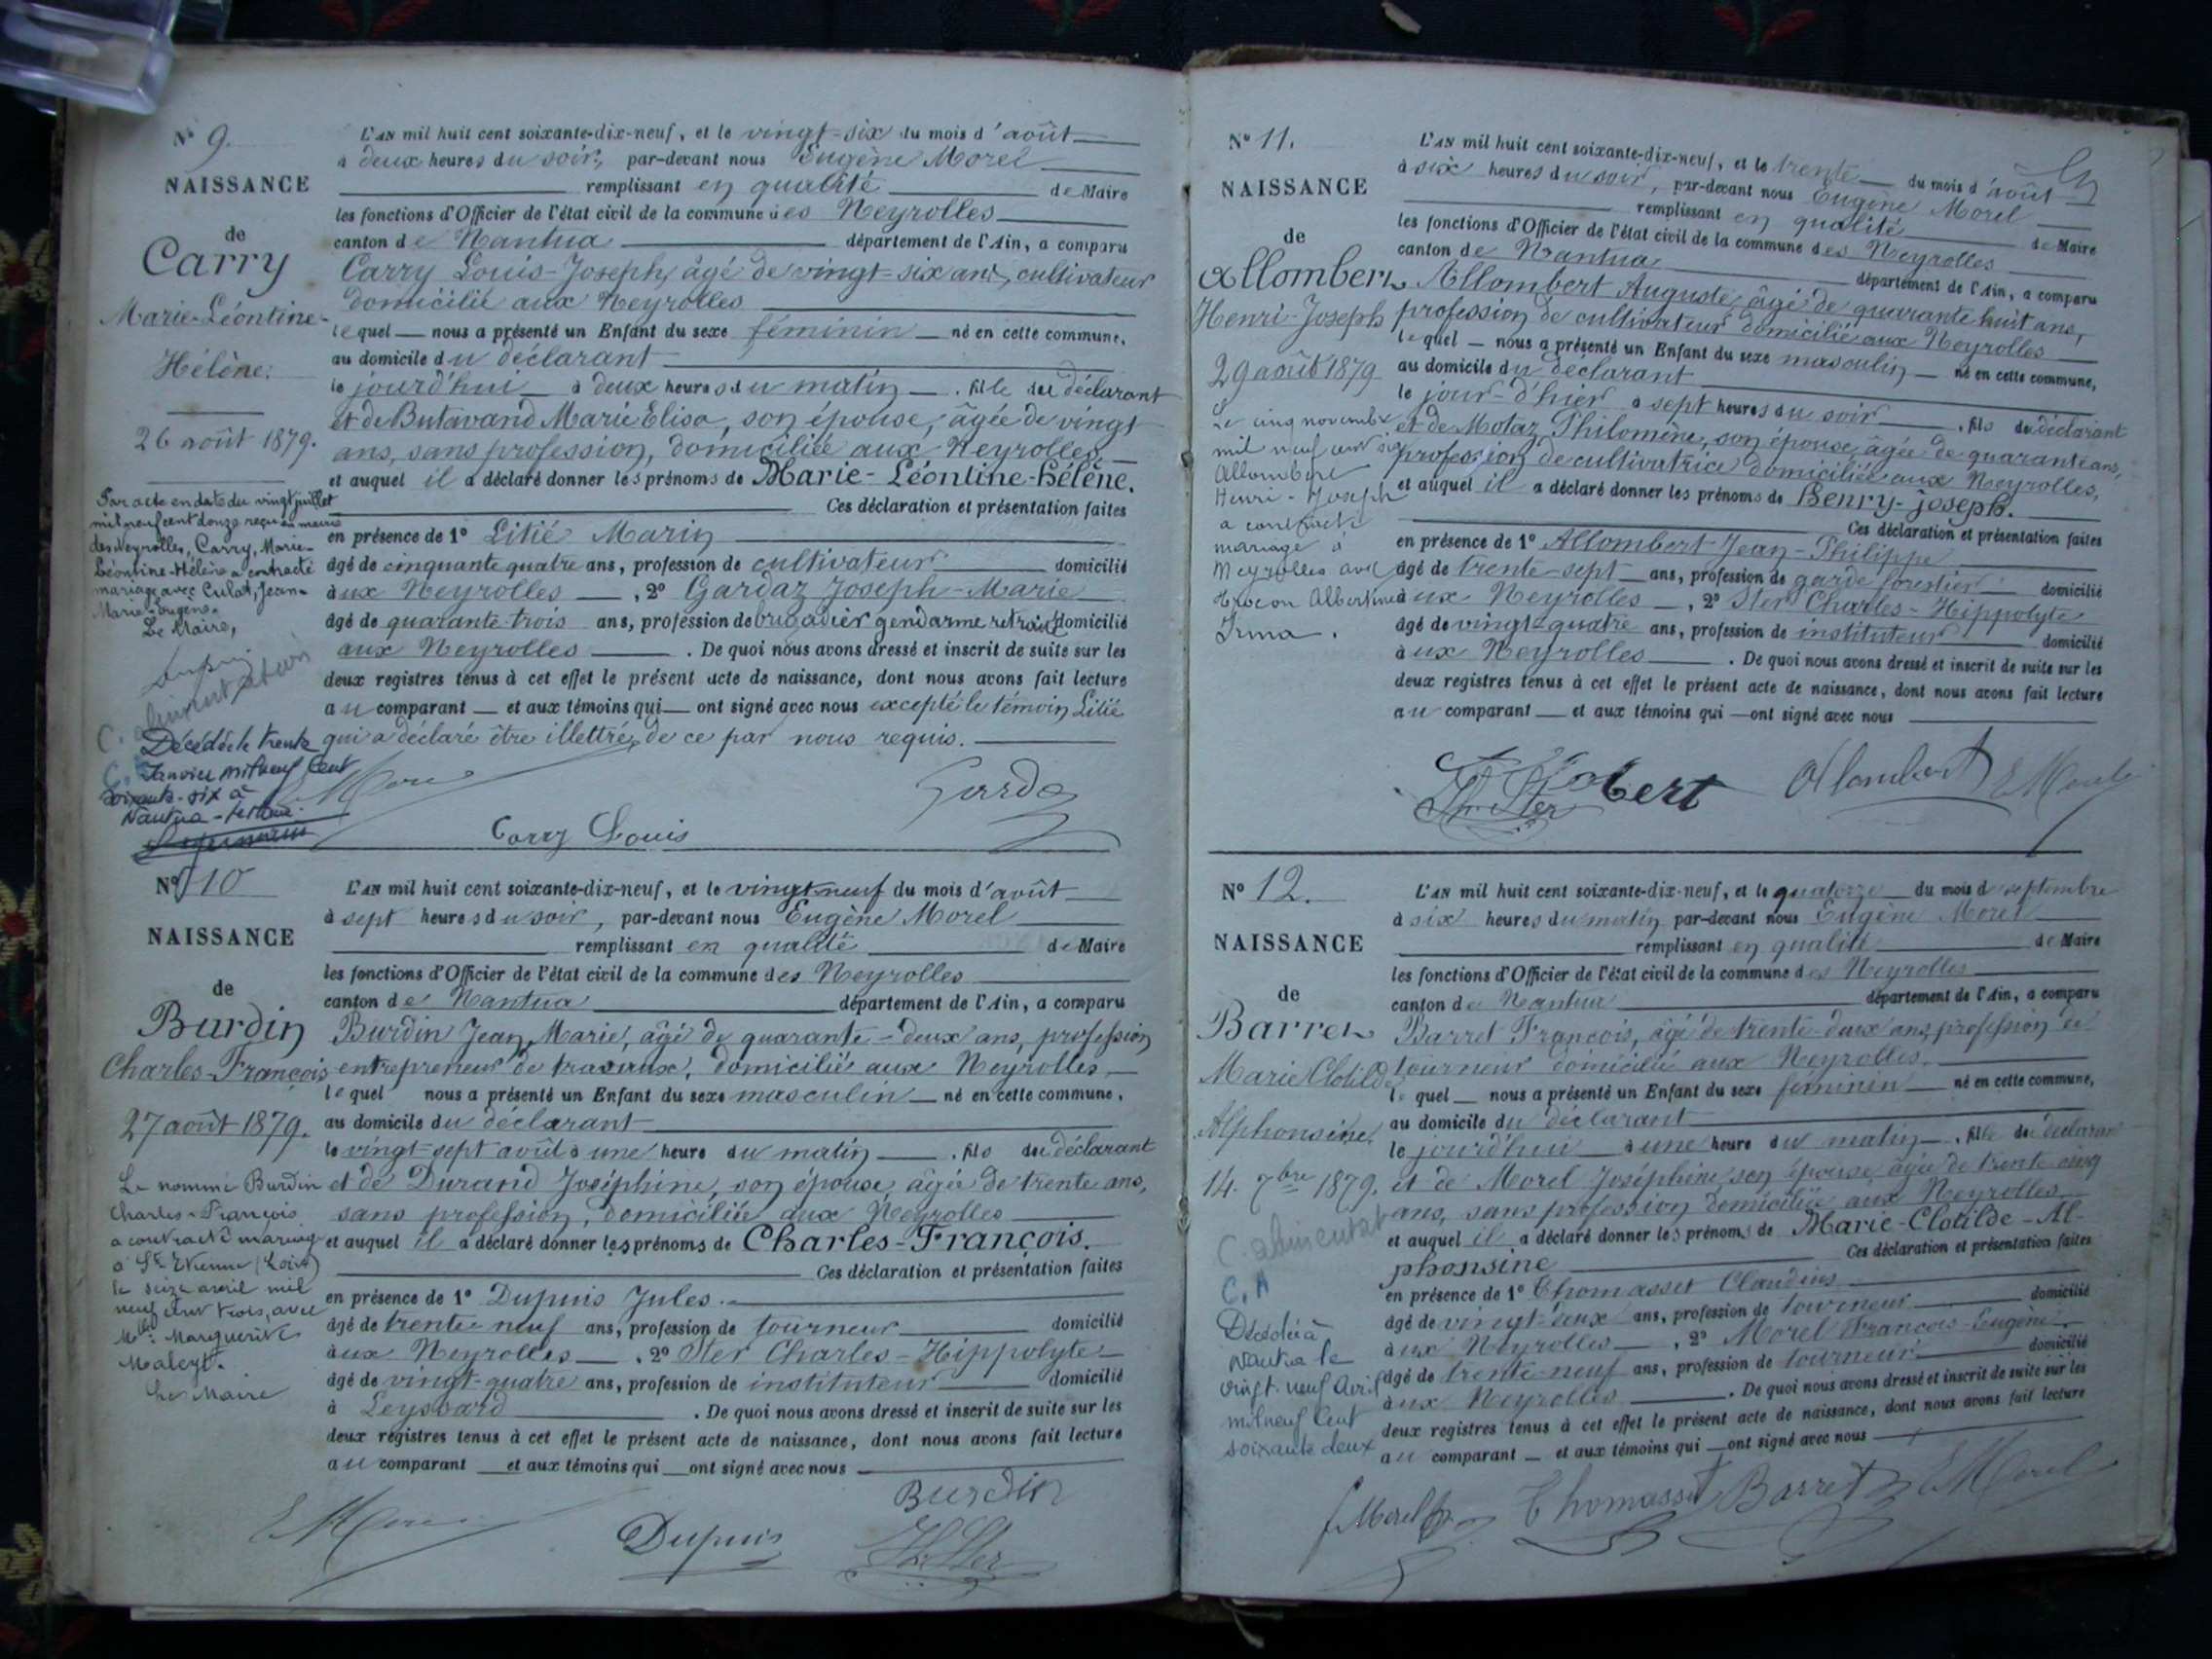 N° 9.
NAISSANCE
de
Carry
Marie-Léontine-
Hélène.
26 août 1879.
Par acte en date du vingt juillet
mil neuf cent douze reçu en mairie
des Neyrolles, Carry, Marie-
Léontine-Hélène a contracté
mariage avec Culat, Jean-
Marie-Eugène.
Le Maire,
C. alimentation
Décédée le trente
Janvier mil neuf Cent
Soixante-six à
Nantua
L'AN mil huit cent soixante-dix-neuf, et le vingt-six du mois d'août
à deux heures du soir, par-devant nous Eugène Morel
remplissant en qualité de Maire
les fonctions d'Officier de l'état civil de la commune des Neyrolles
canton de Nantua département de l'Ain, a comparu
Carry Louis-Joseph, âgé de vingt-six ans, cultivateur
domicilié aux Neyrolles
lequel nous a présenté un Enfant du sexe féminin né en cette commune,
au domicile du déclarant
le jourd'hui à deux heures du matin, fille du déclarant
et de Butavand Marie Elisa, son épouse, âgée de vingt
ans, sans profession, domiciliée aux Neyrolles,
et auquel il a déclaré donner les prénoms de Marie-Léontine-Hélène.
Ces déclaration et présentation faites
en présence de 1° Litié Marin
âgé de cinquante quatre ans, profession de cultivateur domicilié
aux Neyrolles, 2° Gardaz Joseph-Marie
âgé de quarante trois ans, profession de brigadier gendarme retraité domicilié
aux Neyrolles. De quoi nous avons dressé et inscrit de suite sur les
deux registres tenus à cet effet le présent acte de naissance, dont nous avons fait lecture
au comparant et aux témoins qui ont signé avec nous excepté le témoin Litié
qui a déclaré être illettré, de ce par nous requis.
E Morel
Gardaz
Carry Louis
N° 10
NAISSANCE
de
Burdin
Charles-François
27 août 1879.
Le nommé Burdin
Charles-François
a contracté mariage
à St Etienne (Loire)
le seize avril mil
neuf cent trois, avec
Mlle Marguerite
Maleyt.
Le Maire
L'AN mil huit cent soixante-dix-neuf, et le vingt-neuf du mois d'août
à sept heures du soir, par-devant nous Eugène Morel
remplissant en qualité de Maire
les fonctions d'Officier de l'état civil de la commune des Neyrolles
canton de Nantua département de l'Ain, a comparu
Burdin Jean Marie, âgé de quarante-deux ans, profession
entrepreneur de travaux, domicilié aux Neyrolles,
lequel nous a présenté un Enfant du sexe masculin né en cette commune,
au domicile du déclarant
le vingt-sept août à une heure du matin, fils du déclarant
et de Durand Joséphine, son épouse, âgée de trente ans,
sans profession, domiciliée aux Neyrolles
et auquel il a déclaré donner les prénoms de Charles-François.
Ces déclaration et présentation faites
en présence de 1° Dupuis Jules.
âgé de trente neuf ans, profession de tourneur domicilié
aux Neyrolles, 2° Ster Charles-Hippolyte
âgé de vingt-quatre ans, profession de instituteur domicilié
à Leyssard. De quoi nous avons dressé et inscrit de suite sur les
deux registres tenus à cet effet le présent acte de naissance, dont nous avons fait lecture
au comparant et aux témoins qui ont signé avec nous
Burdin
E Morel
Dupuis
Ster
N° 11.
NAISSANCE
de
Allombert
Henri-Joseph
29 août 1879
Le cinq novembre
mil neuf cent six
Allombert
Henri-Joseph
a contracté
mariage à
Neyrolles avec
Albertine
Irma.
L'AN mil huit cent soixante-dix-neuf, et le trente du mois d'août
à six heures du soir, par-devant nous Eugène Morel
remplissant en qualité de Maire
les fonctions d'Officier de l'état civil de la commune des Neyrolles
canton de Nantua département de l'Ain, a comparu
Allombert Auguste, âgé de quarante huit ans,
profession de cultivateur domicilié aux Neyrolles
lequel nous a présenté un Enfant du sexe masculin né en cette commune,
au domicile du déclarant
le jour-d'hier à sept heures du soir, fils du déclarant
et de Motaz Philomène, son épouse, âgée de quarante ans,
profession de cultivatrice domiciliée aux Neyrolles,
et auquel il a déclaré donner les prénoms de Henry-joseph.
Ces déclaration et présentation faites
en présence de 1° Allombert Jean-Philippe
âgé de trente-sept ans, profession de garde forestier domicilié
aux Neyrolles, 2° Ster Charles-Hippolyte
âgé de vingt-quatre ans, profession de instituteur domicilié
aux Neyrolles. De quoi nous avons dressé et inscrit de suite sur les
deux registres tenus à cet effet le présent acte de naissance, dont nous avons fait lecture
au comparant et aux témoins qui ont signé avec nous
Allombert E Morel
Ster
N° 12.
NAISSANCE
de
Barret
Marie Clotilde
Alphonsine,
14. 7bre 1879.
C. alimentat
C. A
Décédée à
Nantua le
vingt-neuf Avril
mil neuf Cent
soixante deux
L'AN mil huit cent soixante-dix-neuf, et le quatorze du mois de septembre
à six heures du matin par-devant nous Eugène Morel
remplissant en qualité de Maire
les fonctions d'Officier de l'état civil de la commune des Neyrolles
canton de Nantua département de l'Ain, a comparu
Barret François, âgé de trente-deux ans, profession de
tourneur domicilié aux Neyrolles.
lequel nous a présenté un Enfant du sexe féminin né en cette commune,
au domicile du déclarant
le jourd'hui à une heure du matin, fille du déclarant
et de Morel Joséphine son épouse, âgée de trente cinq
ans, sans profession domiciliée aux Neyrolles
et auquel il a déclaré donner les prénoms de Marie-Clotilde-Al-
phonsine
Ces déclaration et présentation faites
en présence de 1° Thomasset Claudius
âgé de vingt-deux ans, profession de tourneur domicilié
aux Neyrolles, 2° Morel François-Eugène
âgé de trente-neuf ans, profession de tourneur domicilié
aux Neyrolles. De quoi nous avons dressé et inscrit de suite sur les
deux registres tenus à cet effet le présent acte de naissance, dont nous avons fait lecture
au comparant et aux témoins qui ont signé avec nous
f Morel Thomasset Barret E Morel